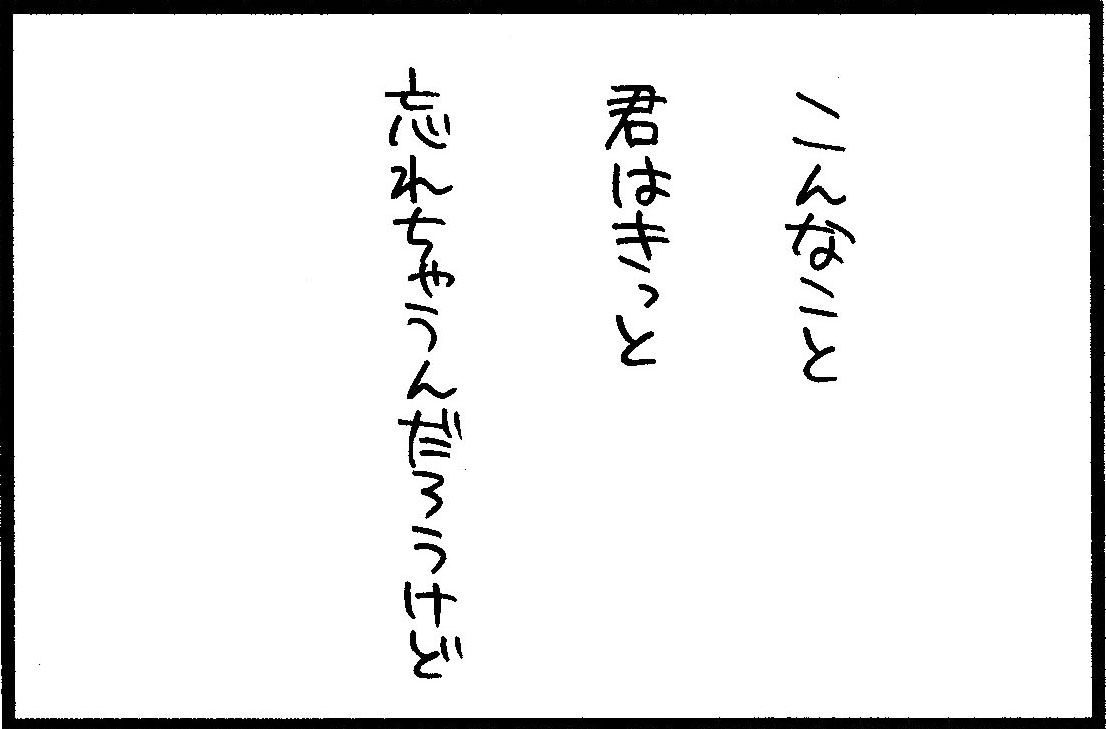 こんなこと
君はきっと
忘れちゃうんだろうけど